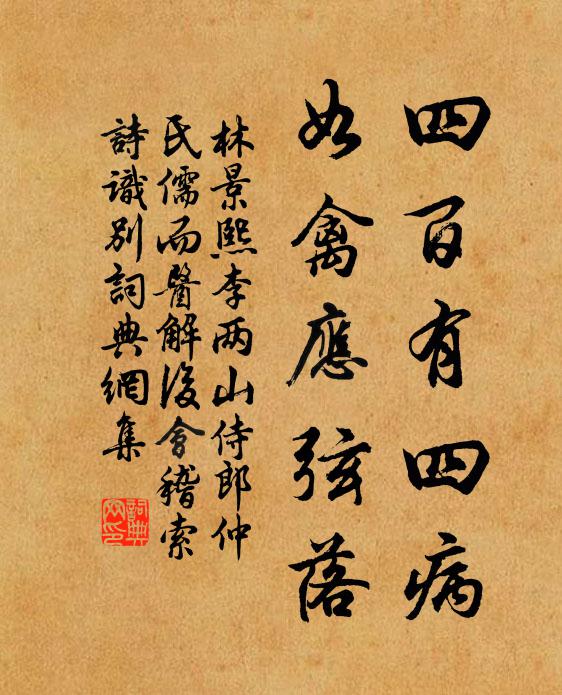 四百有四病
如禽應弦落
林景熙李两山侍郎仲
民儒而醫解後會稽索
詩識别詞典網集
詞典
网印